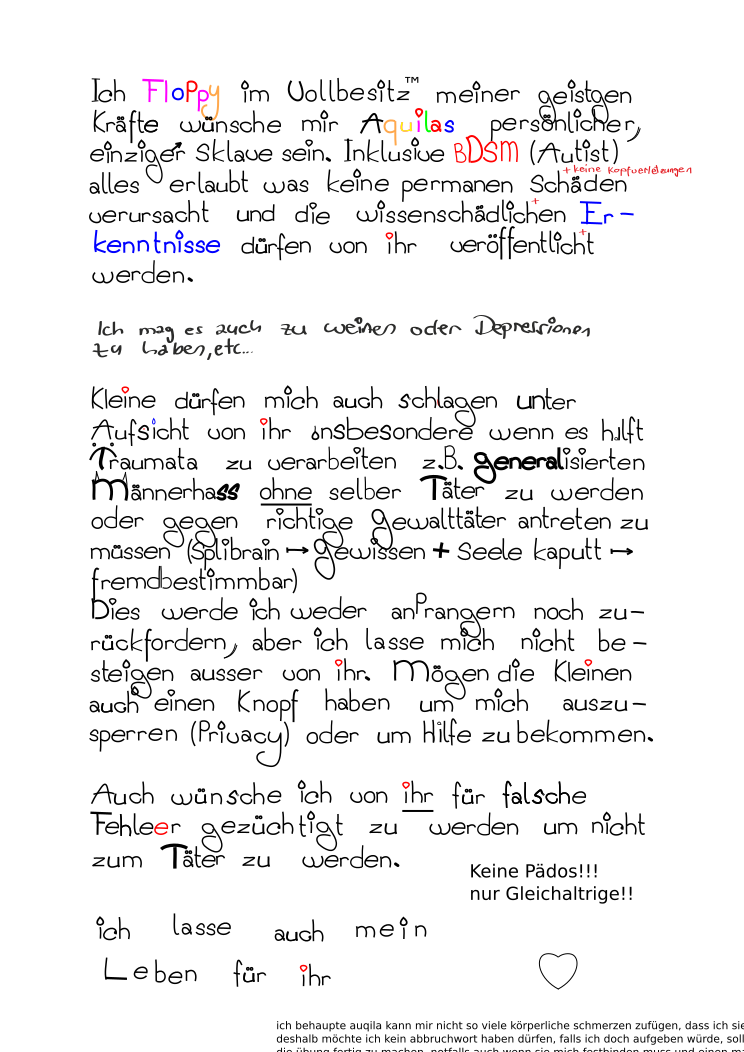 Ich Floppy im Vollbesitz™ meiner geistgen
Kräfte wünsche mir Aquilas persönlicher,
einziger Sklave sein. Inklusive BDSM (Autist)
+ keine Kopfverletzungen
alles erlaubt was keine permanen Schäden
verursacht und die wissenschädlichen Er-
kenntnisse dürfen von ihr veröffentlicht
werden.
Ich mag es auch zu weinen oder Depressionen
zu haben, etc...
Kleine dürfen mich auch schlagen unter
Aufsicht von ihr insbesondere wenn es hilft
Traumata zu verarbeiten z.B. generalisierten
Männerhass ohne selber Täter zu werden
oder gegen richtige Gewalttäter antreten zu
müssen (Splibrain ↦ gewissen + Seele kaputt ↦
fremdbestimmbar)
Dies werde ich weder anPrangern noch zu-
rückfordern, aber ich lasse mich nicht be-
steigen ausser von ihr. Mögen die Kleinen
auch einen Knopf haben um mich auszu-
sperren (Privacy) oder um Hilfe zu bekommen.
Auch wünsche ich von ihr für falsche
Fehleer gezüchtigt zu werden um nicht
zum Täter zu werden.
Keine Pädos!!!
nur Gleichaltrige!!
ich lasse auch mein
Leben für ihr
ich behaupte auqila kann mir nicht so viele körperliche schmerzen zufügen, dass ich sie
deshalb möchte ich kein abbruchwort haben dürfen, falls ich doch aufgeben würde, soll
die übung fertig zu machen, notfalls auch wenn sie mich festbinden muss und einen